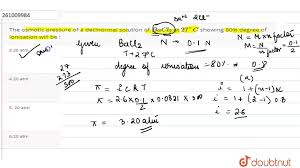 261009984
The osmotic pressure of a decinormal solution of BaCl₂ at 27° C showing 80% degree of
ionisation will be :
Ba²⁺ 2Cl⁻
Given BaCl₂ N → 0.1 N
M = N / n factor = 0.1 / 2
T → 27°C
27
273
300
degree of ionisation = 80% = 0.8
π = i C R T
π = 2.6 × 0.1/2 × 0.0821 × 300
π = 3.20 atm
i = 1 + (n-1)α
i = 1 + (3-1) 0.8
i = 2.6
6.20 atm